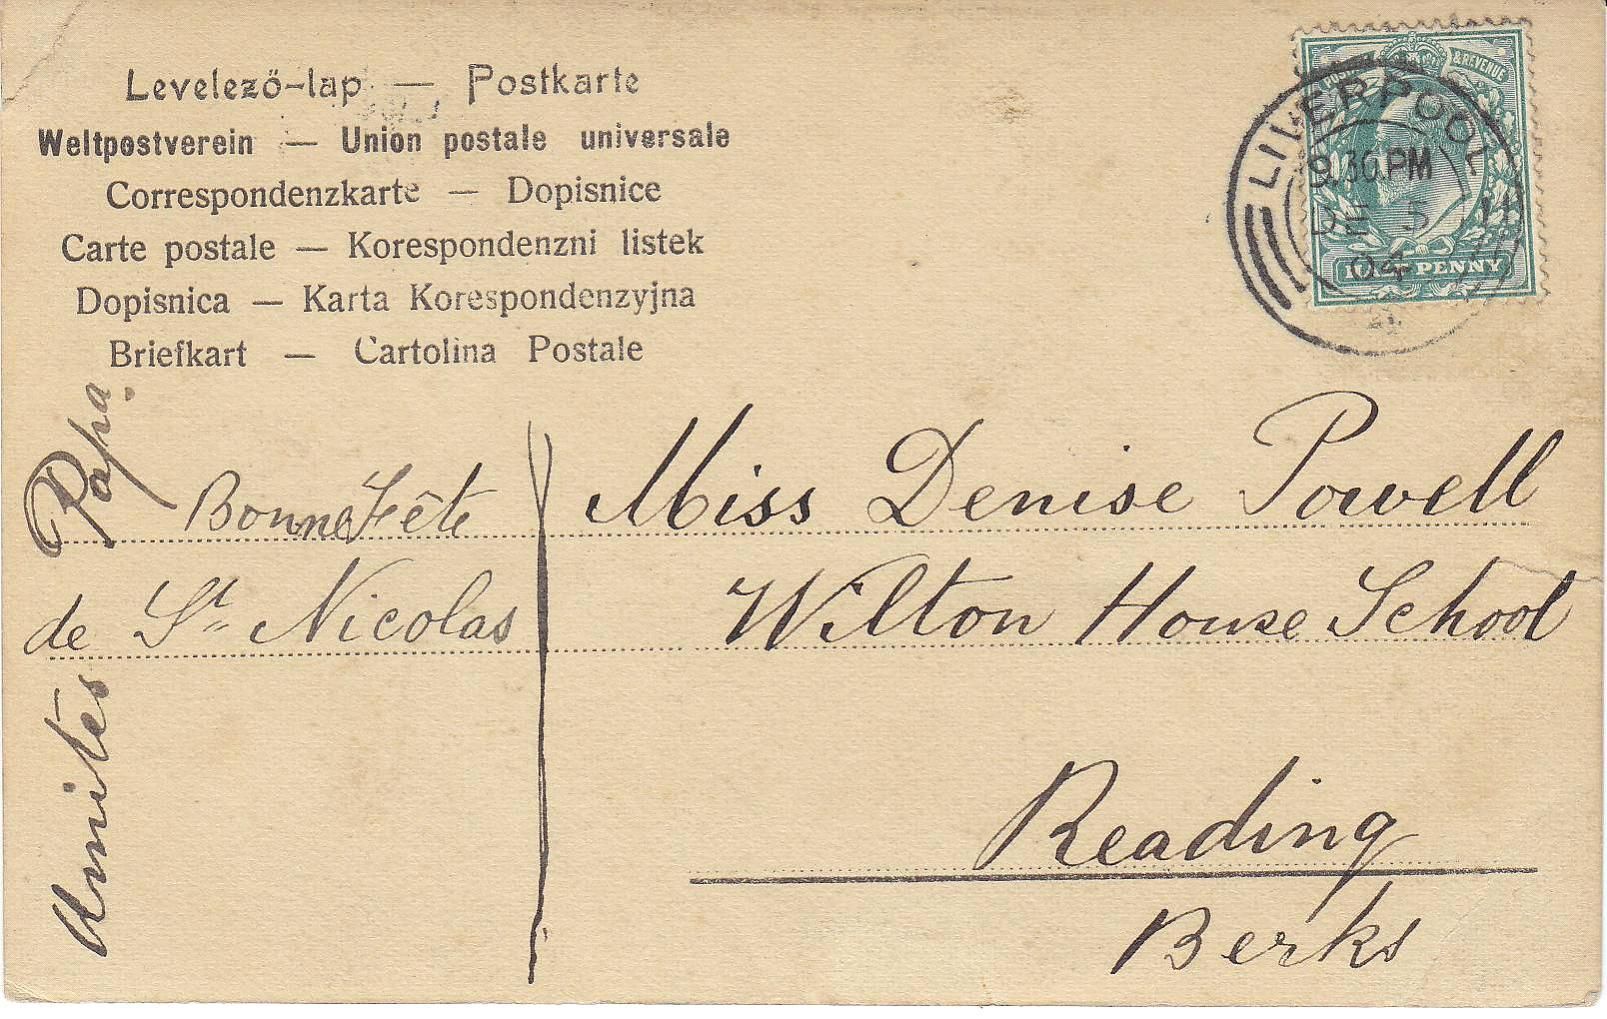 Levelező-lap — Postkarte
Weltpostverein — Union postale universale
Correspondenzkarte — Dopisnice
Carte postale — Korespondenzni listek
Dopisnica — Karta Korespondenzyjna
Briefkart — Cartolina Postale
POSTAGE & REVENUE
HALF PENNY
LIVERPOOL
9.30.PM
DE 5
04
Bonne Fête
de St Nicolas
Amités
Papa
Miss Denise Powell
Wilton House School
Reading
Berks